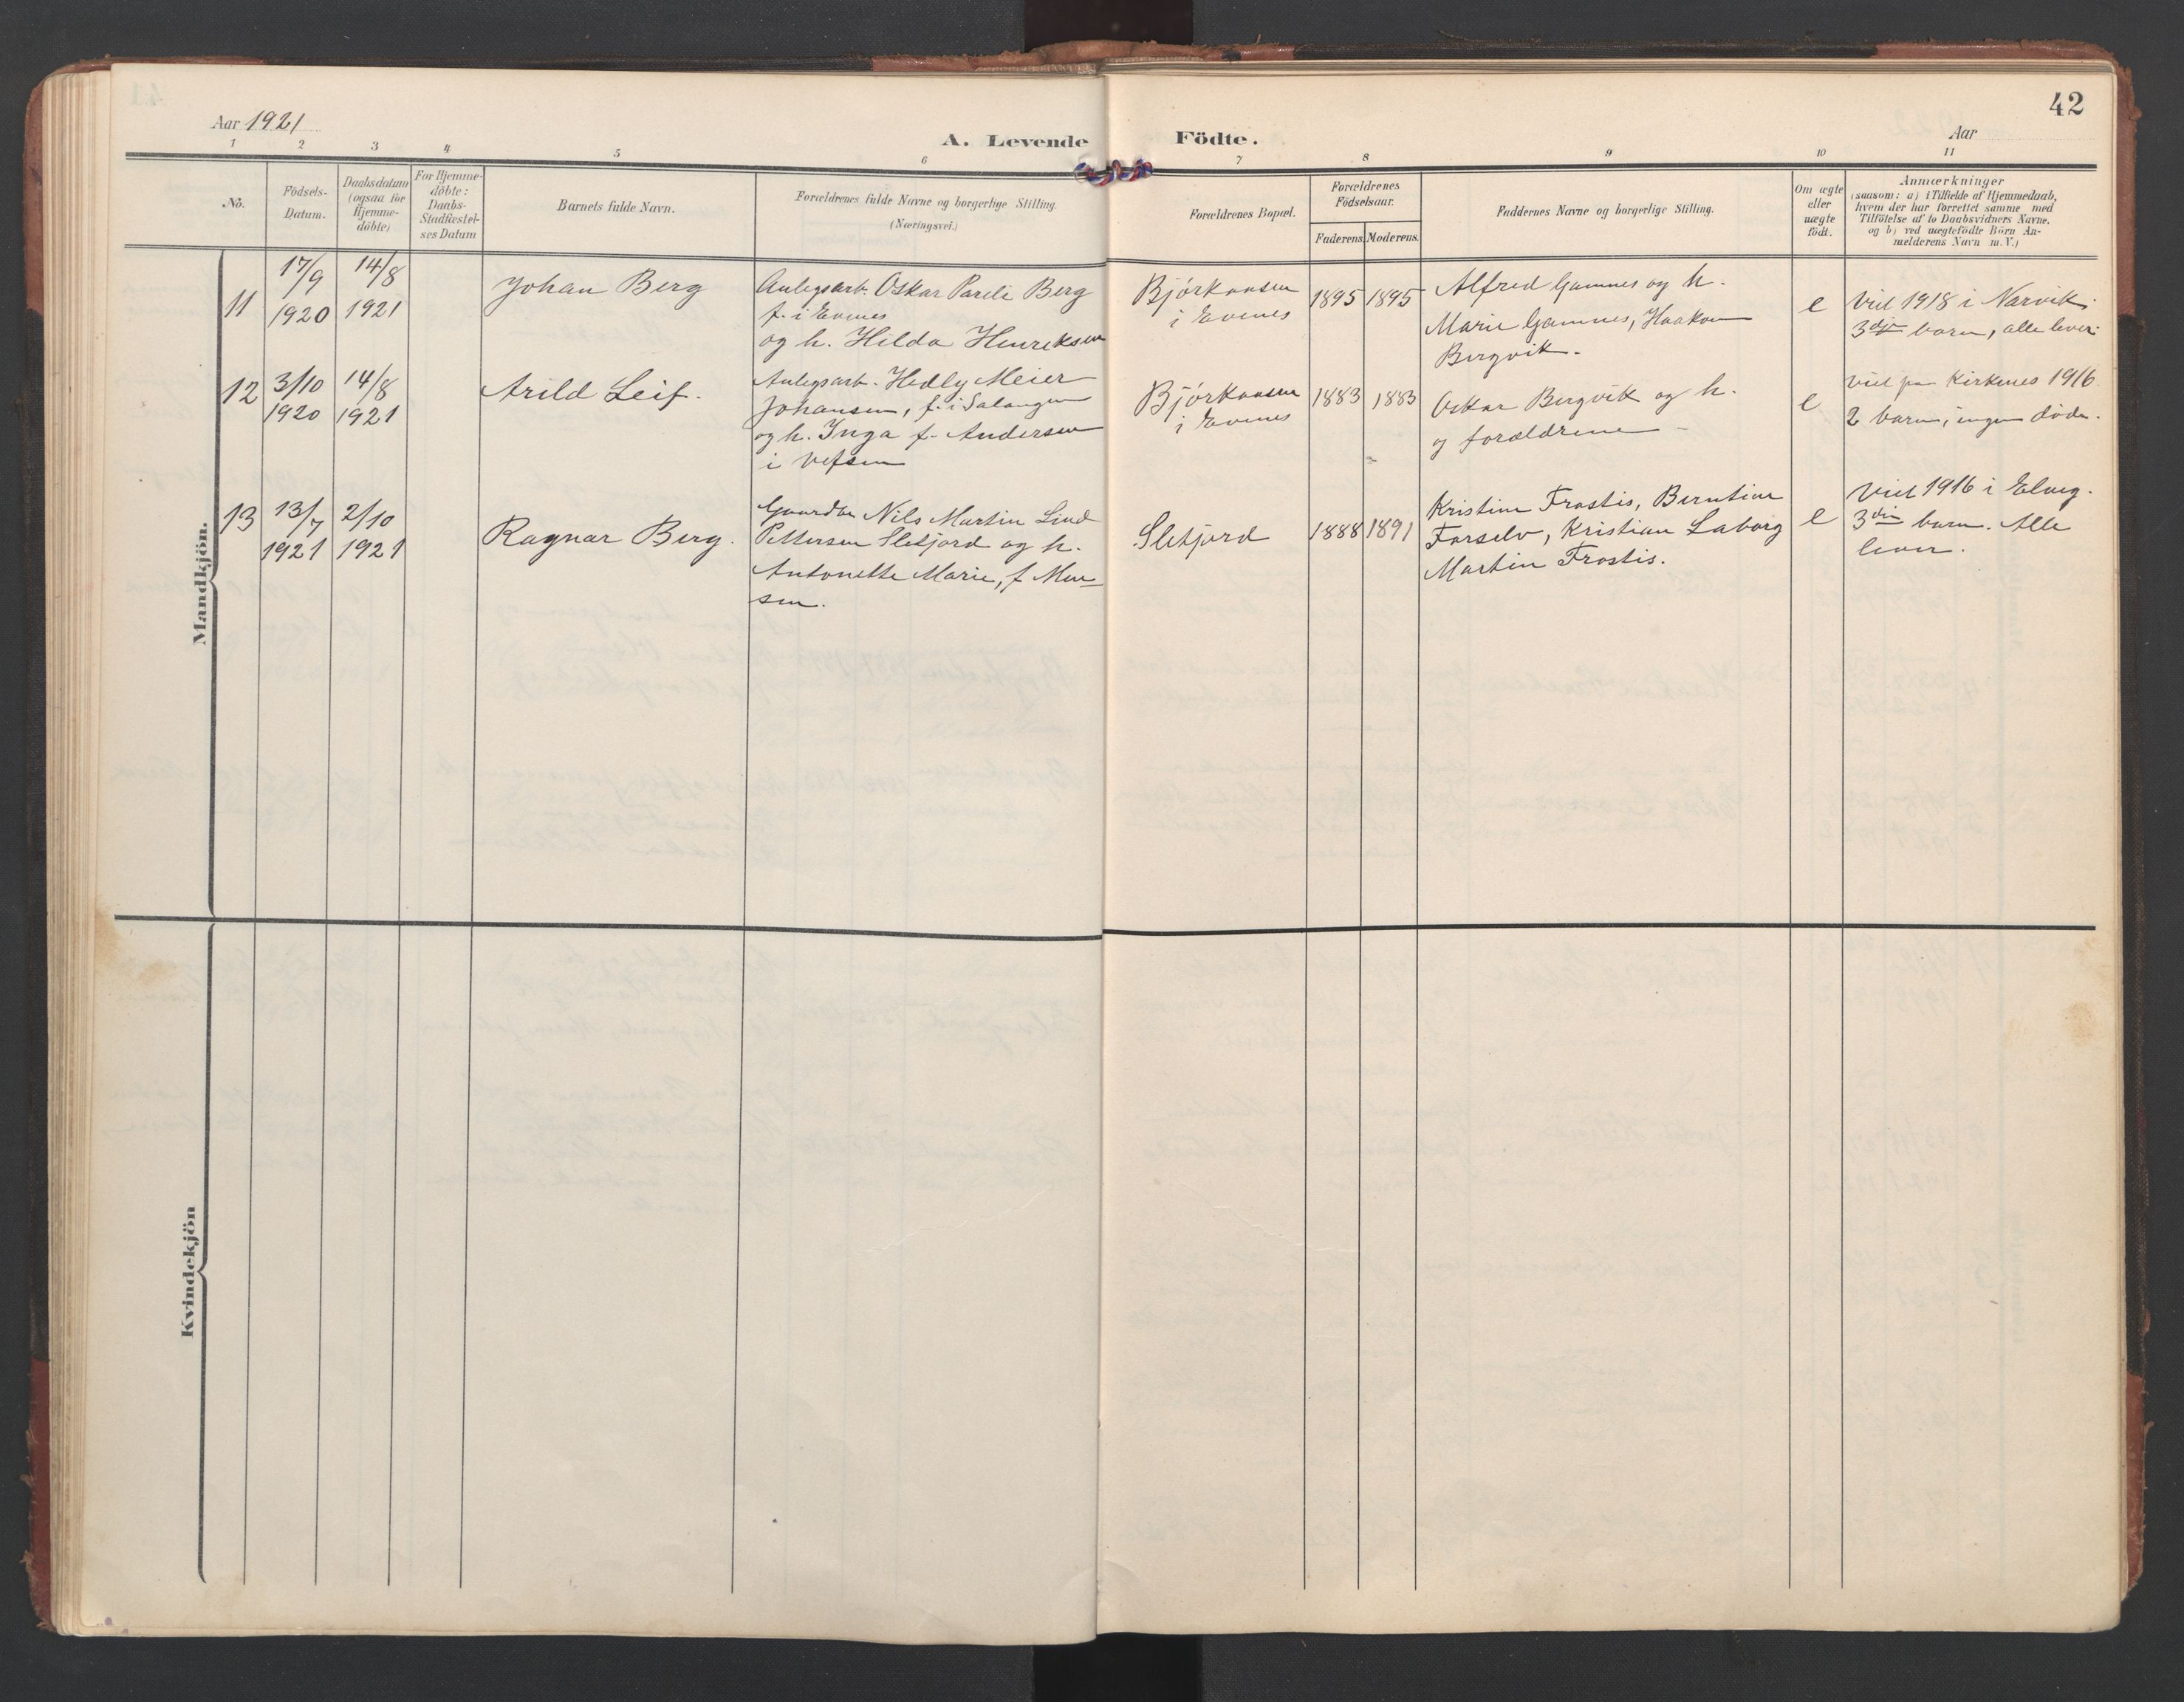 42
Aar 1921
A. Levende Födte.
Aar
1 2 3 4 5 6 7 8 9 10 11
No.
Födsels-
Datum.
Daabsdatum
(ogsaa for
Hjemme-
döbte)
For Hjemme-
döbte:
Daabs-
Stadfæstel-
ses Datum
Barnets fulde Navn.
Forældrenes fulde Navne og borgerlige Stilling.
(Næringsvei.)
Forældrenes Bopæl.
Forældrenes
Födselsaar.
Faderens.
Moderens.
Faddernes Navne og borgerlige Stilling.
Om ægte
eller
uægte
födt.
Anmærkninger
(saasom: a) i Tilfælde af Hjemmedaab,
hvem der har forrettet samme med
Tilföielse af to Daabsvidners Navne.
og b) ved uægtefödte Börn An-
melderens Navn m.V.)
Mandkjön.
11
17/9
1920
14/8
1921
Johan Berg
Anlegsarb. Oskar Pareli Berg
f. i Evenes
og h. Hilda Henriksen
Bjørkaasen
i Evenes
1895
1895
Alfred Gamnes og h.
Marie Gamnes, Haakon
Bergvik.
e
Viet 1918 i Narvik.
3die barn, alle lever.
12
3/10
1920
14/8
1921
Arild Leif.
Anlegsarb. Hedly Meier
Johansen, f. i Salangen
og h. Inga f. Andersen
i Vefsen
Bjørkaasen
i Evenes
1883
1883
Oskar Bergvik og h.
og forældrene
e
viet paa Kirkenes 1916
2 barn, ingen døde.
13
13/7
1921
2/10
1921
Ragnar Berg.
Gaardbr Nils Martin Lind
Pettersen Sletjord og h.
Antonette Marie, f
sen.
Sletjord
1888
1891
Kristine Frostis, Berntine
Forselv, Kristian Laborg
Martin Frostis.
e
Viet 1916 i Elveg.
3die barn. Alle
lever.
Kvindekjön